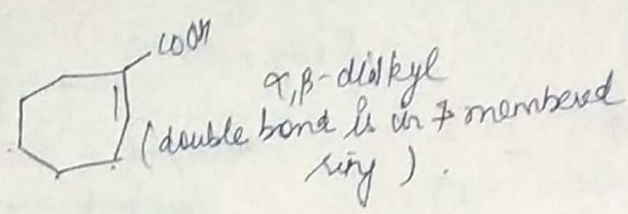 COOH
α,β-dialkyl
(double bond is in 7 membered
ring).